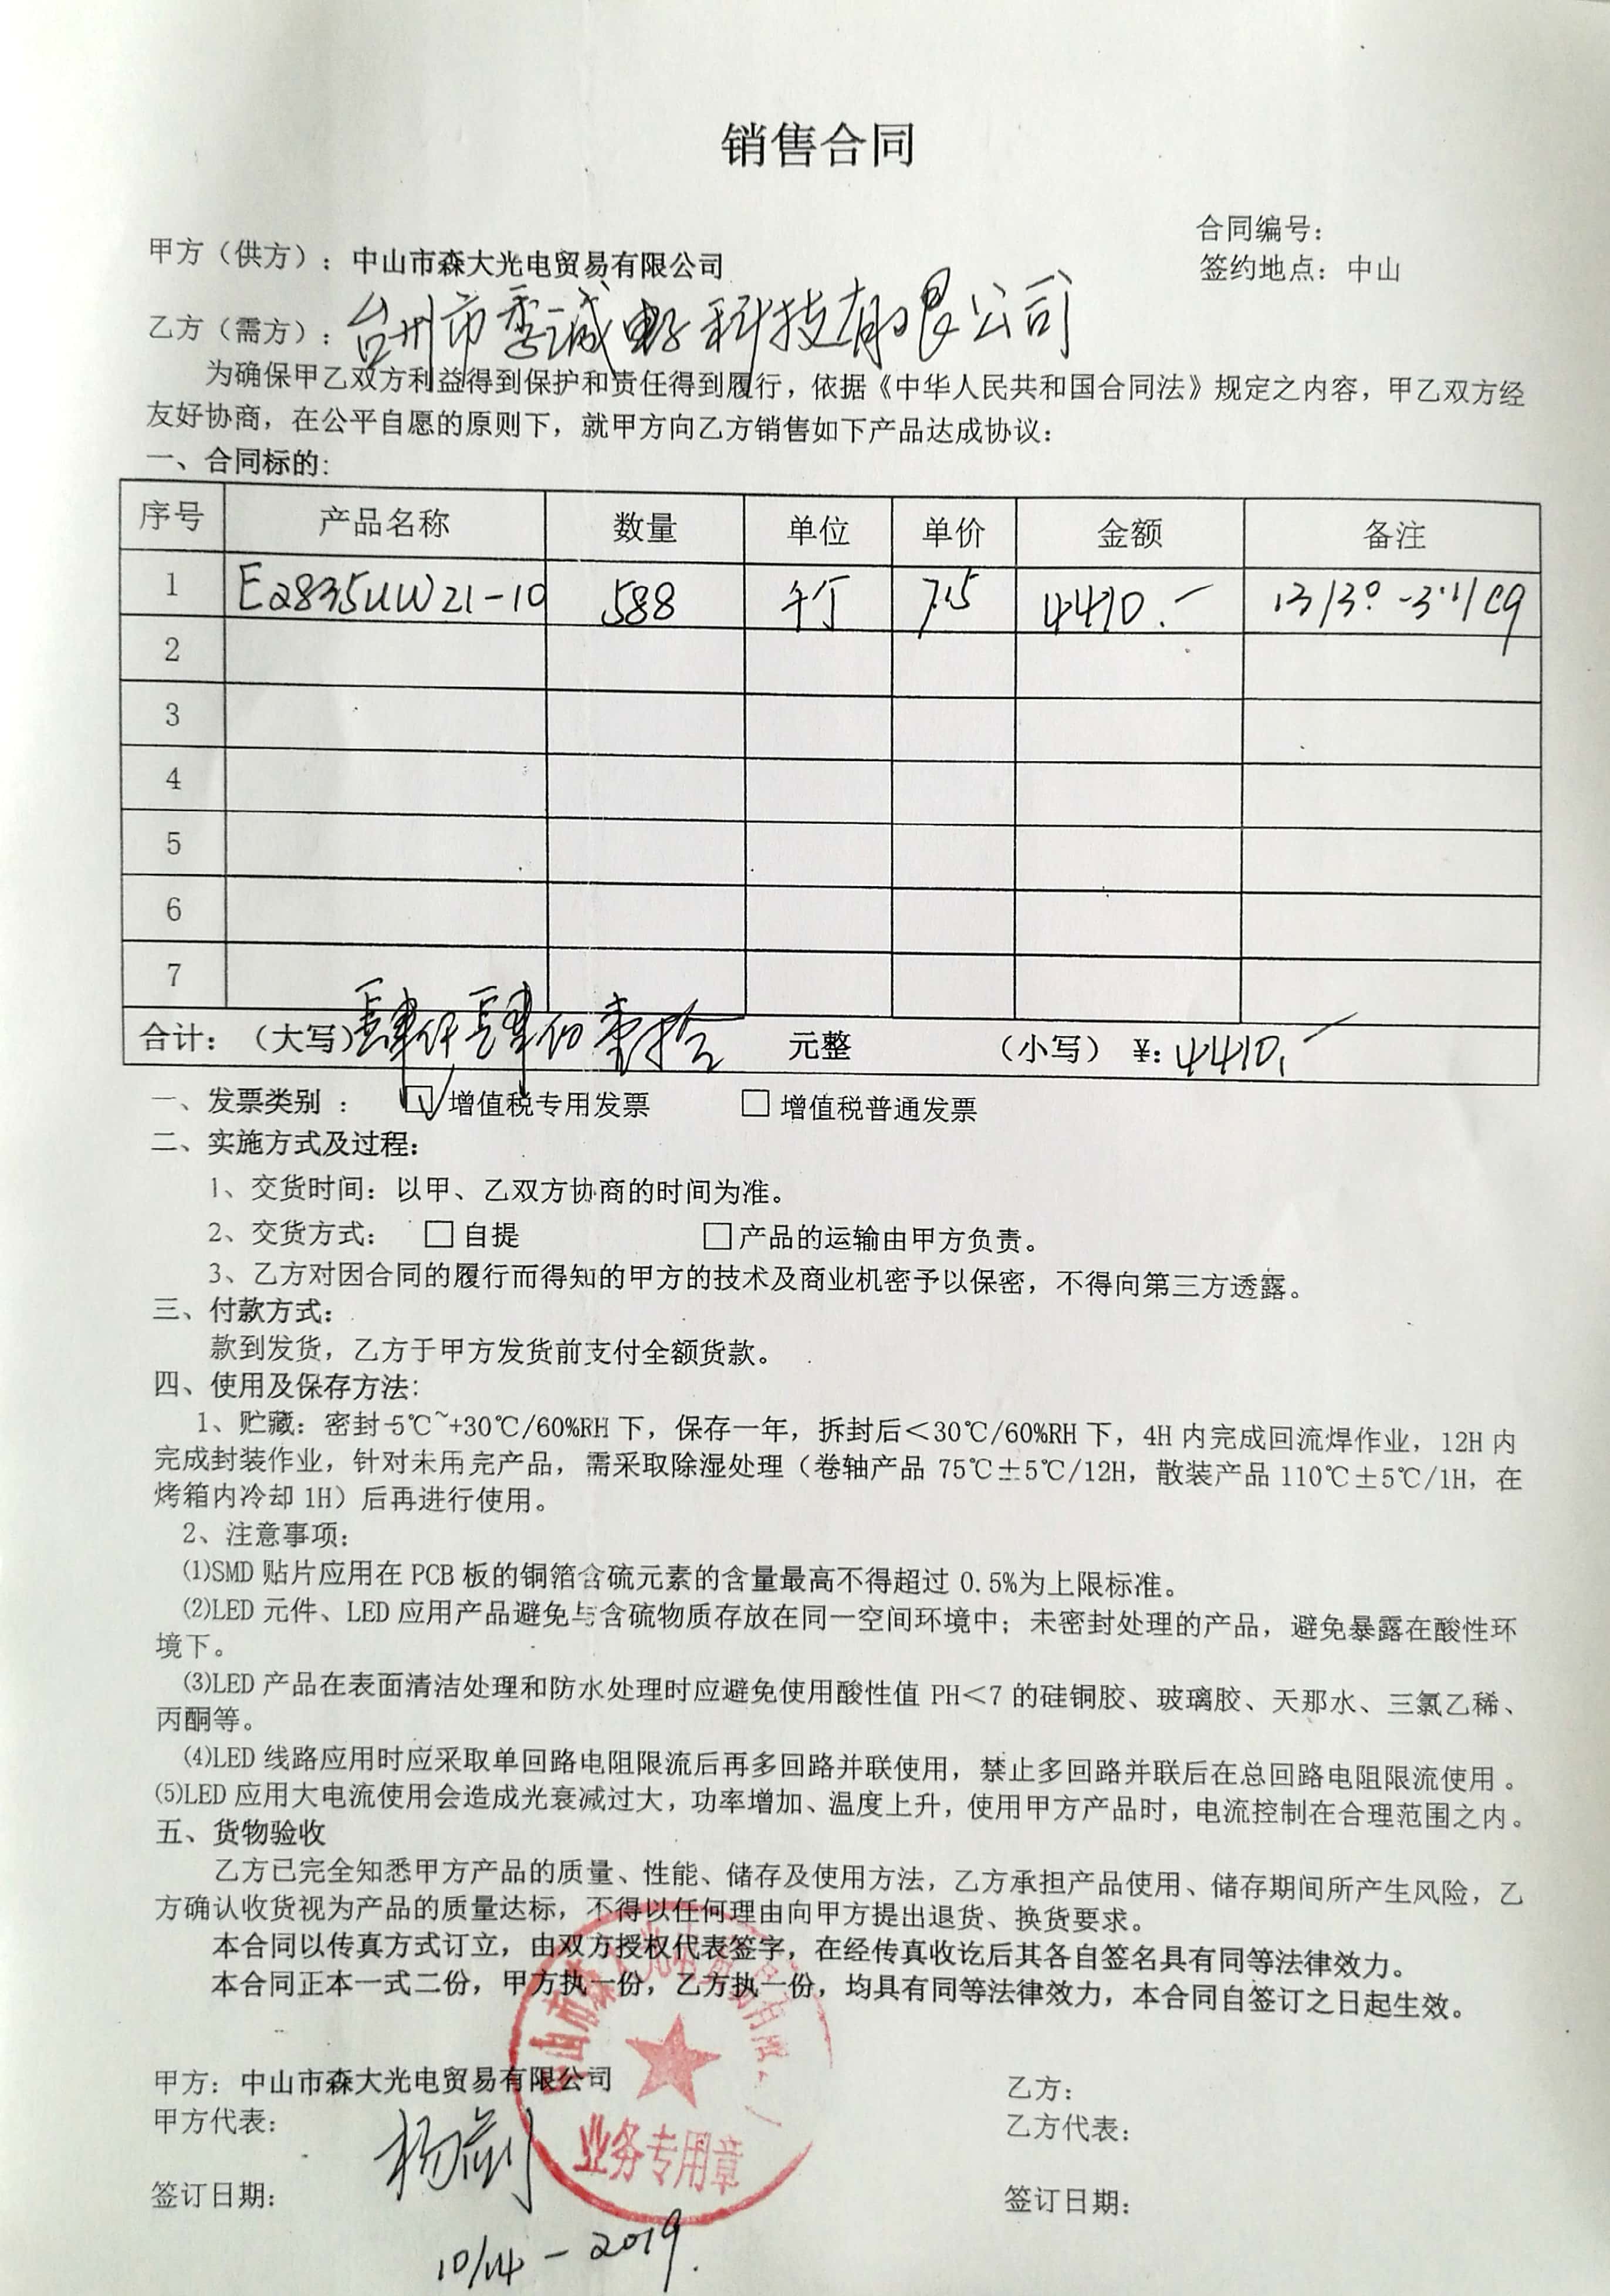 销售合同
合同编号：
甲方（供方）：中山市森大光电贸易有限公司
签约地点：中山
乙方（需方）：台州市季诚电子科技有限公司
为确保甲乙双方利益得到保护和责任得到履行，依据《中华人民共和国合同法》规定之内容，甲乙双方经
友好协商，在公平自愿的原则下，就甲方向乙方销售如下产品达成协议：
一、合同标的：
序号 产品名称 数量 单位 单价 金额 备注
1 E2835UW21-10 588 千丁 7.5 4410.- 13/3.0-3.1/C9
2
3
4
5
6
7
合计：（大写）肆仟肆佰壹拾 元整 （小写）¥：4410.-
一、发票类别： ☑增值税专用发票 □增值税普通发票
二、实施方式及过程：
1、交货时间：以甲、乙双方协商的时间为准。
2、交货方式： □自提 □产品的运输由甲方负责。
3、乙方对因合同的履行而得知的甲方的技术及商业机密予以保密，不得向第三方透露。
三、付款方式：
款到发货，乙方于甲方发货前支付全额货款。
四、使用及保存方法：
1、贮藏：密封-5℃~+30℃/60%RH下，保存一年，拆封后＜30℃/60%RH下，4H内完成回流焊作业，12H内
完成封装作业，针对未用完产品，需采取除湿处理（卷轴产品75℃±5℃/12H，散装产品110℃±5℃/1H，在
烤箱内冷却1H）后再进行使用。
2、注意事项：
⑴SMD贴片应用在PCB板的铜箔含硫元素的含量最高不得超过0.5%为上限标准。
⑵LED元件、LED应用产品避免与含硫物质存放在同一空间环境中；未密封处理的产品，避免暴露在酸性环
境下。
⑶LED产品在表面清洁处理和防水处理时应避免使用酸性值PH＜7的硅铜胶、玻璃胶、天那水、三氯乙稀、
丙酮等。
⑷LED线路应用时应采取单回路电阻限流后再多回路并联使用，禁止多回路并联后在总回路电阻限流使用。
⑸LED应用大电流使用会造成光衰减过大，功率增加、温度上升，使用甲方产品时，电流控制在合理范围之内。
五、货物验收
乙方已完全知悉甲方产品的质量、性能、储存及使用方法，乙方承担产品使用、储存期间所产生风险，乙
方确认收货视为产品的质量达标，不得以任何理由向甲方提出退货、换货要求。
本合同以传真方式订立，由双方授权代表签字，在经传真收讫后其各自签名具有同等法律效力。
本合同正本一式二份，甲方执一份，乙方执一份，均具有同等法律效力，本合同自签订之日起生效。
甲方：中山市森大光电贸易有限公司
乙方：
甲方代表：
乙方代表：
业务专用章
签订日期：
签订日期：
10/14-2019.